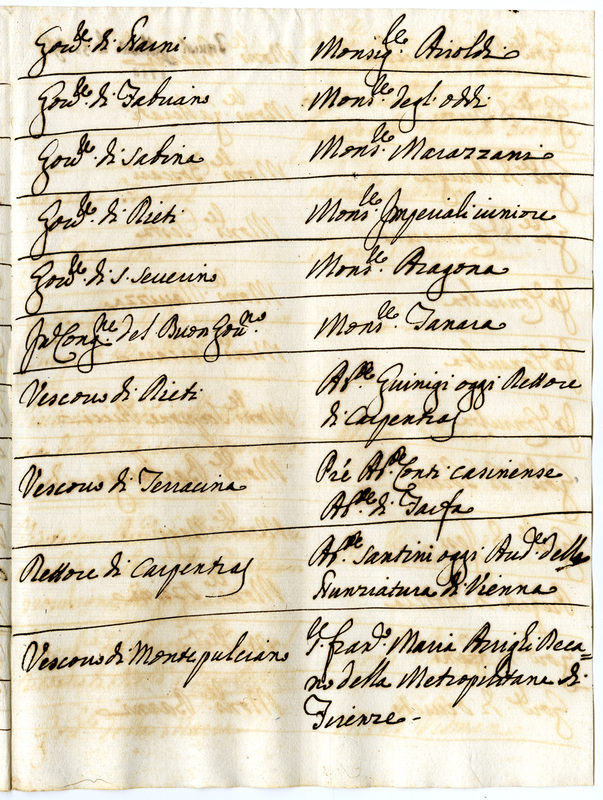 Gov.le di Narni Monsig.le Airoldi
Gov.le di Fabriano Mons.le degl'oddi
Gov.le di Sabina Mons.le Marazzani
Gov.le di Rieti Mons.le Imperiali iuniore
Gov.le di S. Severino Mons.le Aragona
Cong.ne del Buon Gov.no Mons.le Tanara
Vescovo di Rieti Ab.te Guinigi oggi Rettore
di Carpentras
Vescovo di Terracina Pre Ab.te Conti casinense
Ab.te di Farfa
Rettore di Carpentras Ab.te Santini oggi Aud.e della
Nunziatura di Vienna
Vescovo di Montepulciano Fran.o Maria Arrighi Deca=
no della Metropolitana di
Firenze -